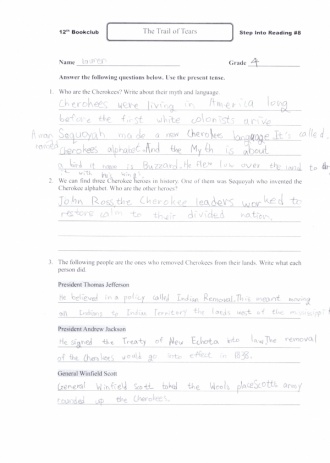 12th Bookclub
The Trail of Tears
Step Into Reading #8
Name Lauren
Grade 4
Answer the following questions below. Use the present tense.
1. Who are the Cherokees? Write about their myth and language.
Cherokees were living in America long
before the first white colonists arive
A man named Sequoyah made a new Cherokee language. It's called
Cherokee alphabet. And the Myth is about
a bird it name is Buzzard. He flew low over the land to
with his wing
2. We can find three Cherokee heroes in history. One of them was Sequoyah who invented the
Cherokee alphabet. Who are the other heroes?
John Ross, the Cherokee leaders worked to
restore calm to their divided nation
3. The following people are the ones who removed Cherokees from their lands. Write what each
person did.
President Thomas Jefferson
He believed in a policy called Indian Removal. This meant moving
all Indians to Indian Territory the lands west of the mississippi
President Andrew Jackson
He signed the Treaty of New Echota into law. The removal
of the Cherokees would go into effect in 1838.
General Winfield Scott
General Winfield Scott took the Wools place Scotts army
rounded up the Cherokees.